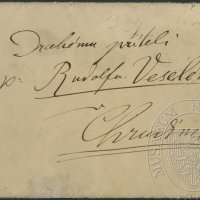 Drahému příteli
p. Rudolfu Vesele
Chrudim
MUSEUM